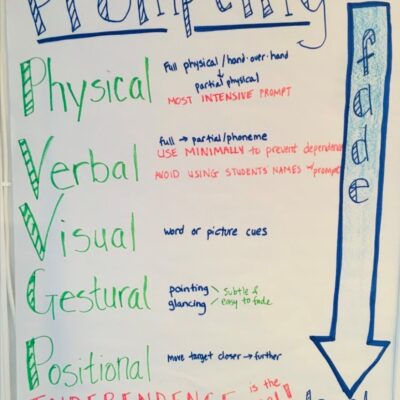 Prompting
Physical
Full physical/hand-over-hand
↓
partial physical
MOST INTENSIVE PROMPT
Verbal
full → partial/phoneme
USE MINIMALLY to prevent dependence
AVOID USING STUDENTS' NAMES w/prompt
Visual
word or picture cues
Gestural
pointing
glancing
subtle &
easy to fade
Positional
Move target closer → further
INDEPENDENCE is the
fade